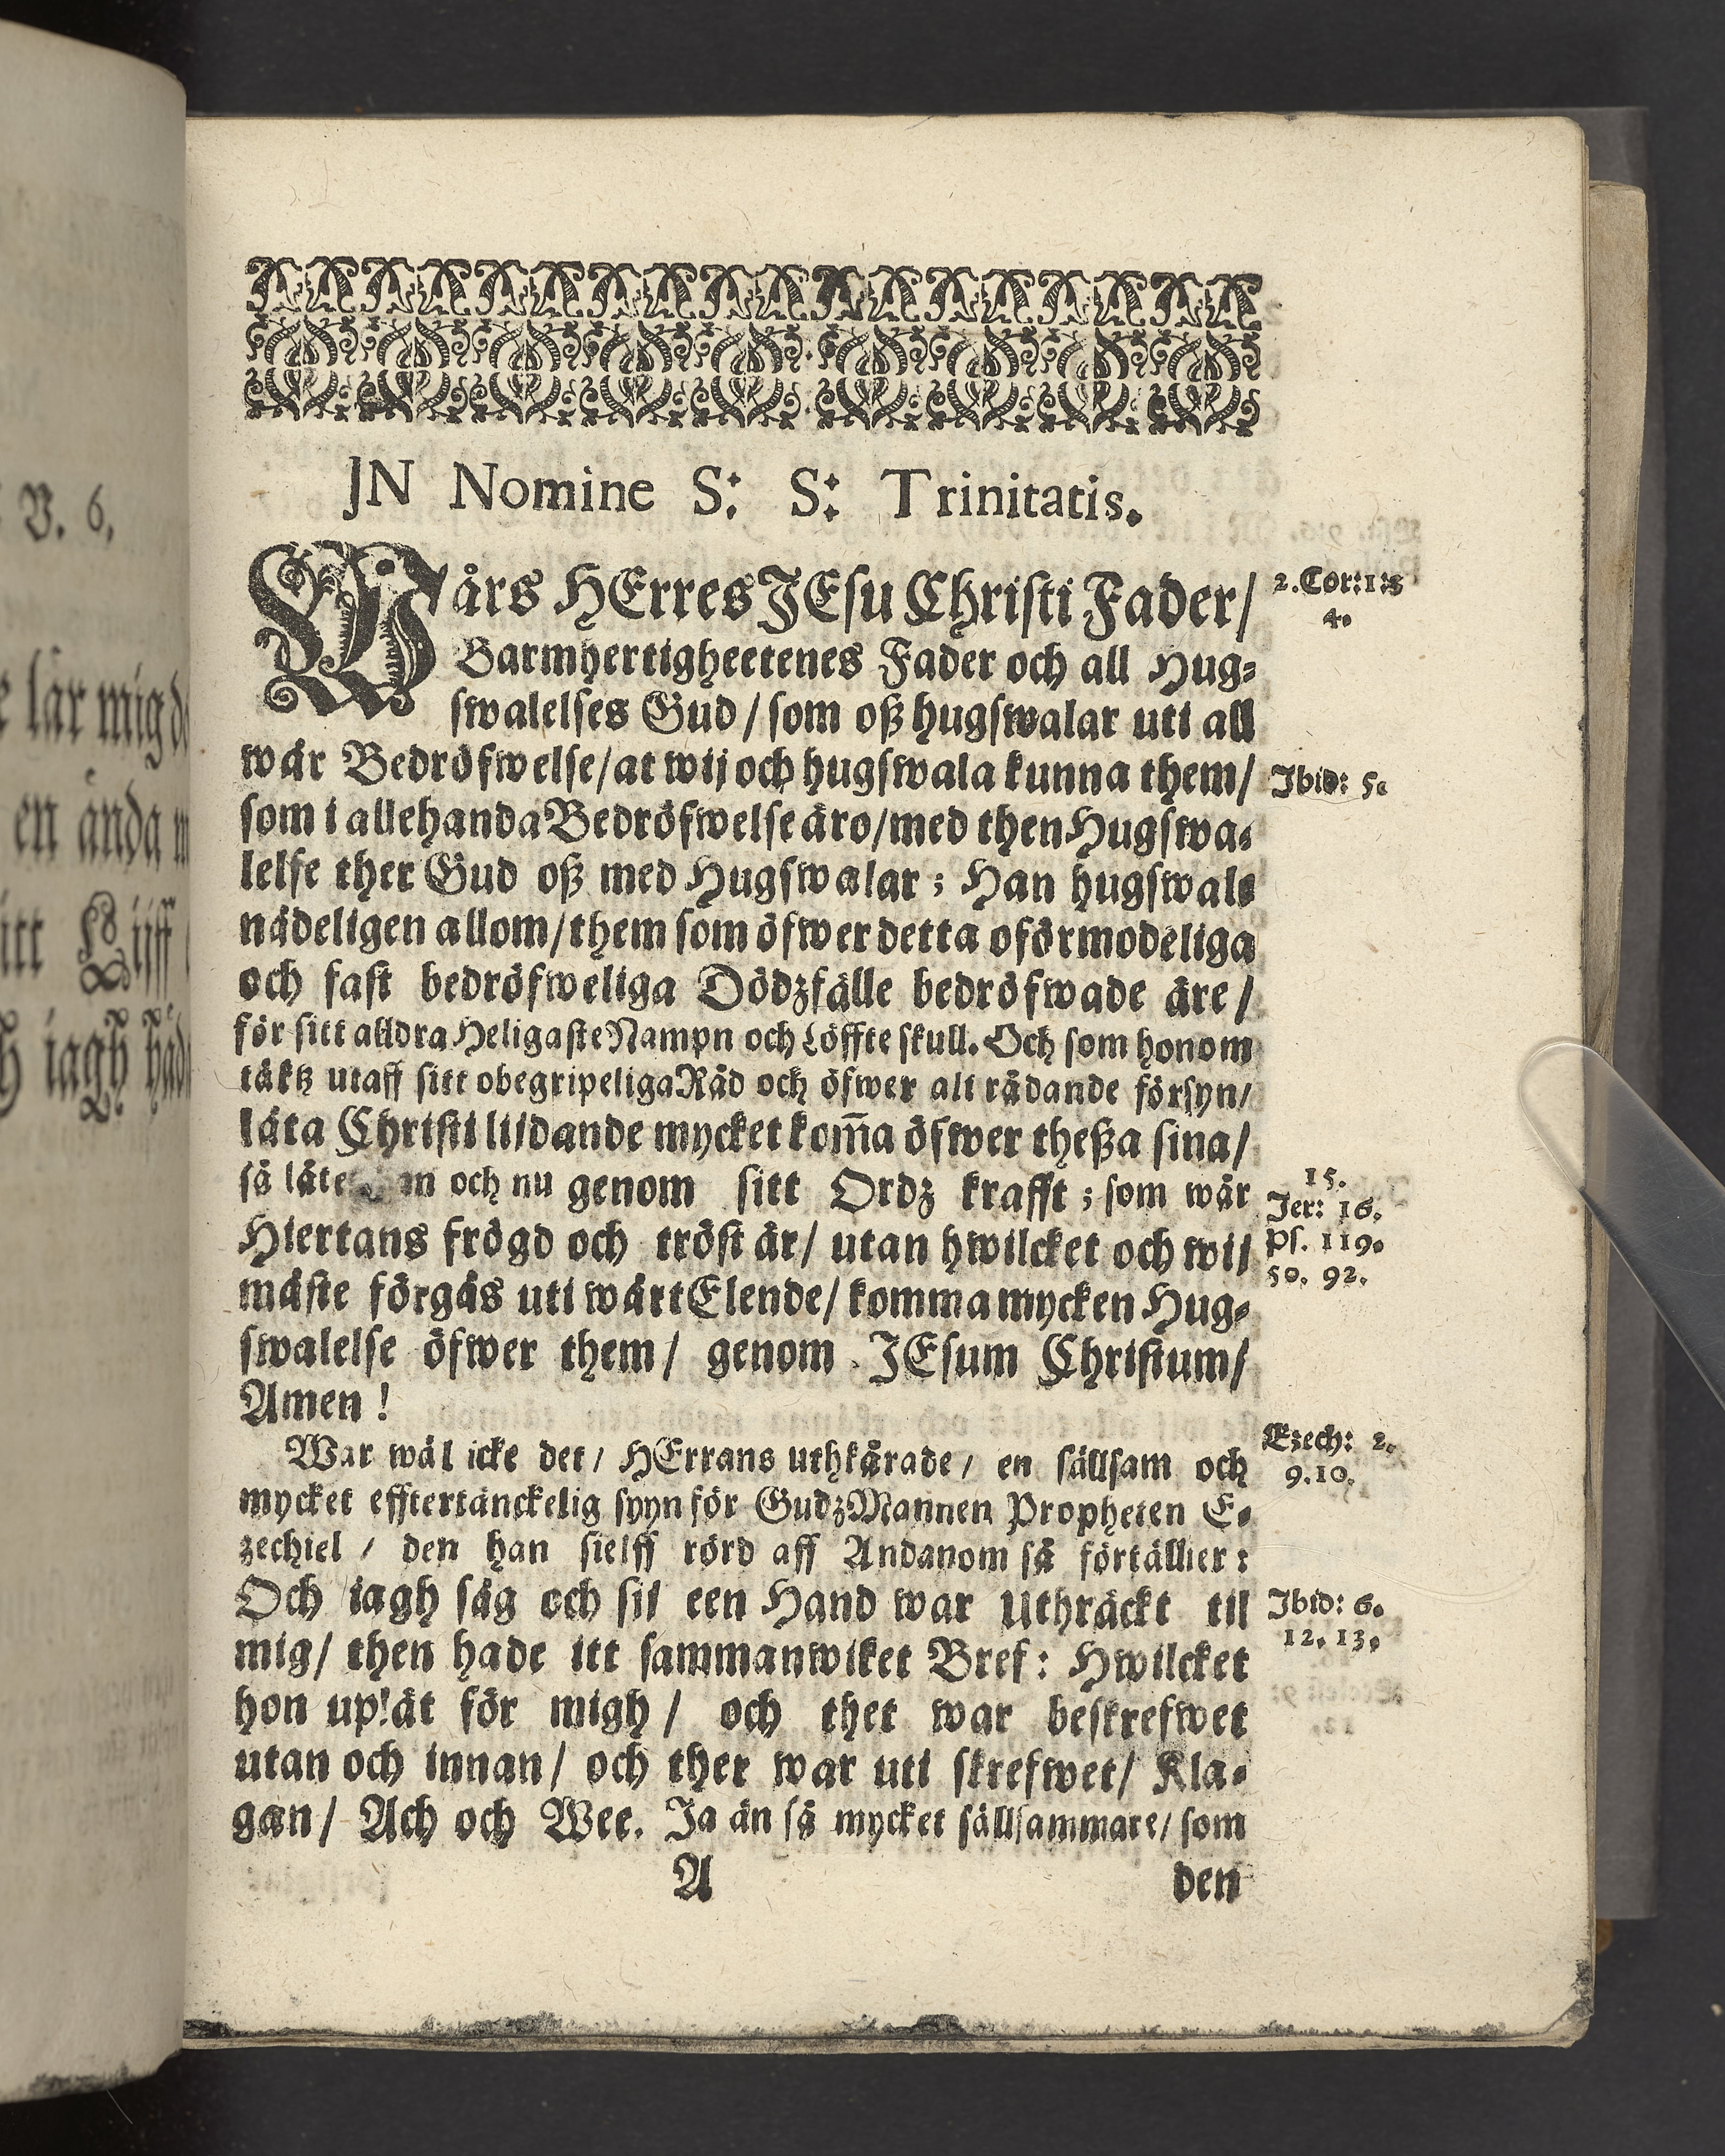 V. 6,
lär mig
en ända
itt Lijff
iagh
JN Nomine S: S: Trinitatis.
Wårs HErres JEsu Christi Fader/
Barmhertigheetenes Fader och all Hug-
swalelses Gud / som oß hugswalar uti all
wår Bedröfwelse/at wij och hugswala kunna them/
som i allehanda Bedröfwelse äro/med then Hugswa-
lelse ther Gud oß med Hugswalar; Han hugswale
nådeligen allom/them som öfwer detta oförmodeliga
och fast bedröfweliga Dödzfälle bedröfwade äre/
för sitt alldra Heligaste Nampn och Löffte skull. Och som honom
täktz utaff sitt obegripeliga Råd och öfwer alt rådande försyn/
låta Christi lijdande mycket kom̄a öfwer theßa sina/
så låte och nu genom sitt Ordz krafft; som wår
Hiertans frögd och tröst är/ utan hwilcket och wij
måste förgås uti wårt Elende/ komma mycken Hug-
swalelse öfwer them/ genom JEsum Christum/
Amen!
War wäl icke det/ HErrans uthkårade/ en sällsam och
mycket efftertänckelig syyn för Gudz Mannen Propheten E-
zechiel / den han sielff rörd aff Andanom så förtällier:
Och iagh såg och sij een Hand war uthräckt til
mig/ then hade itt sammanwiket Bref: Hwilcket
hon uplät för migh/ och thet war beskrefwet
utan och innan/ och ther war uti skrefwet/ Kla-
gan/ Ach och Wee. Ja än så mycket sällsammare/ som
A den
2. Cor: 1: 3
4.
Ibid: 5.
15.
Jer: 16.
Ps. 119.
50. 92.
Ezech: 2.
9.10.
Ibid: 6.
12. 13.